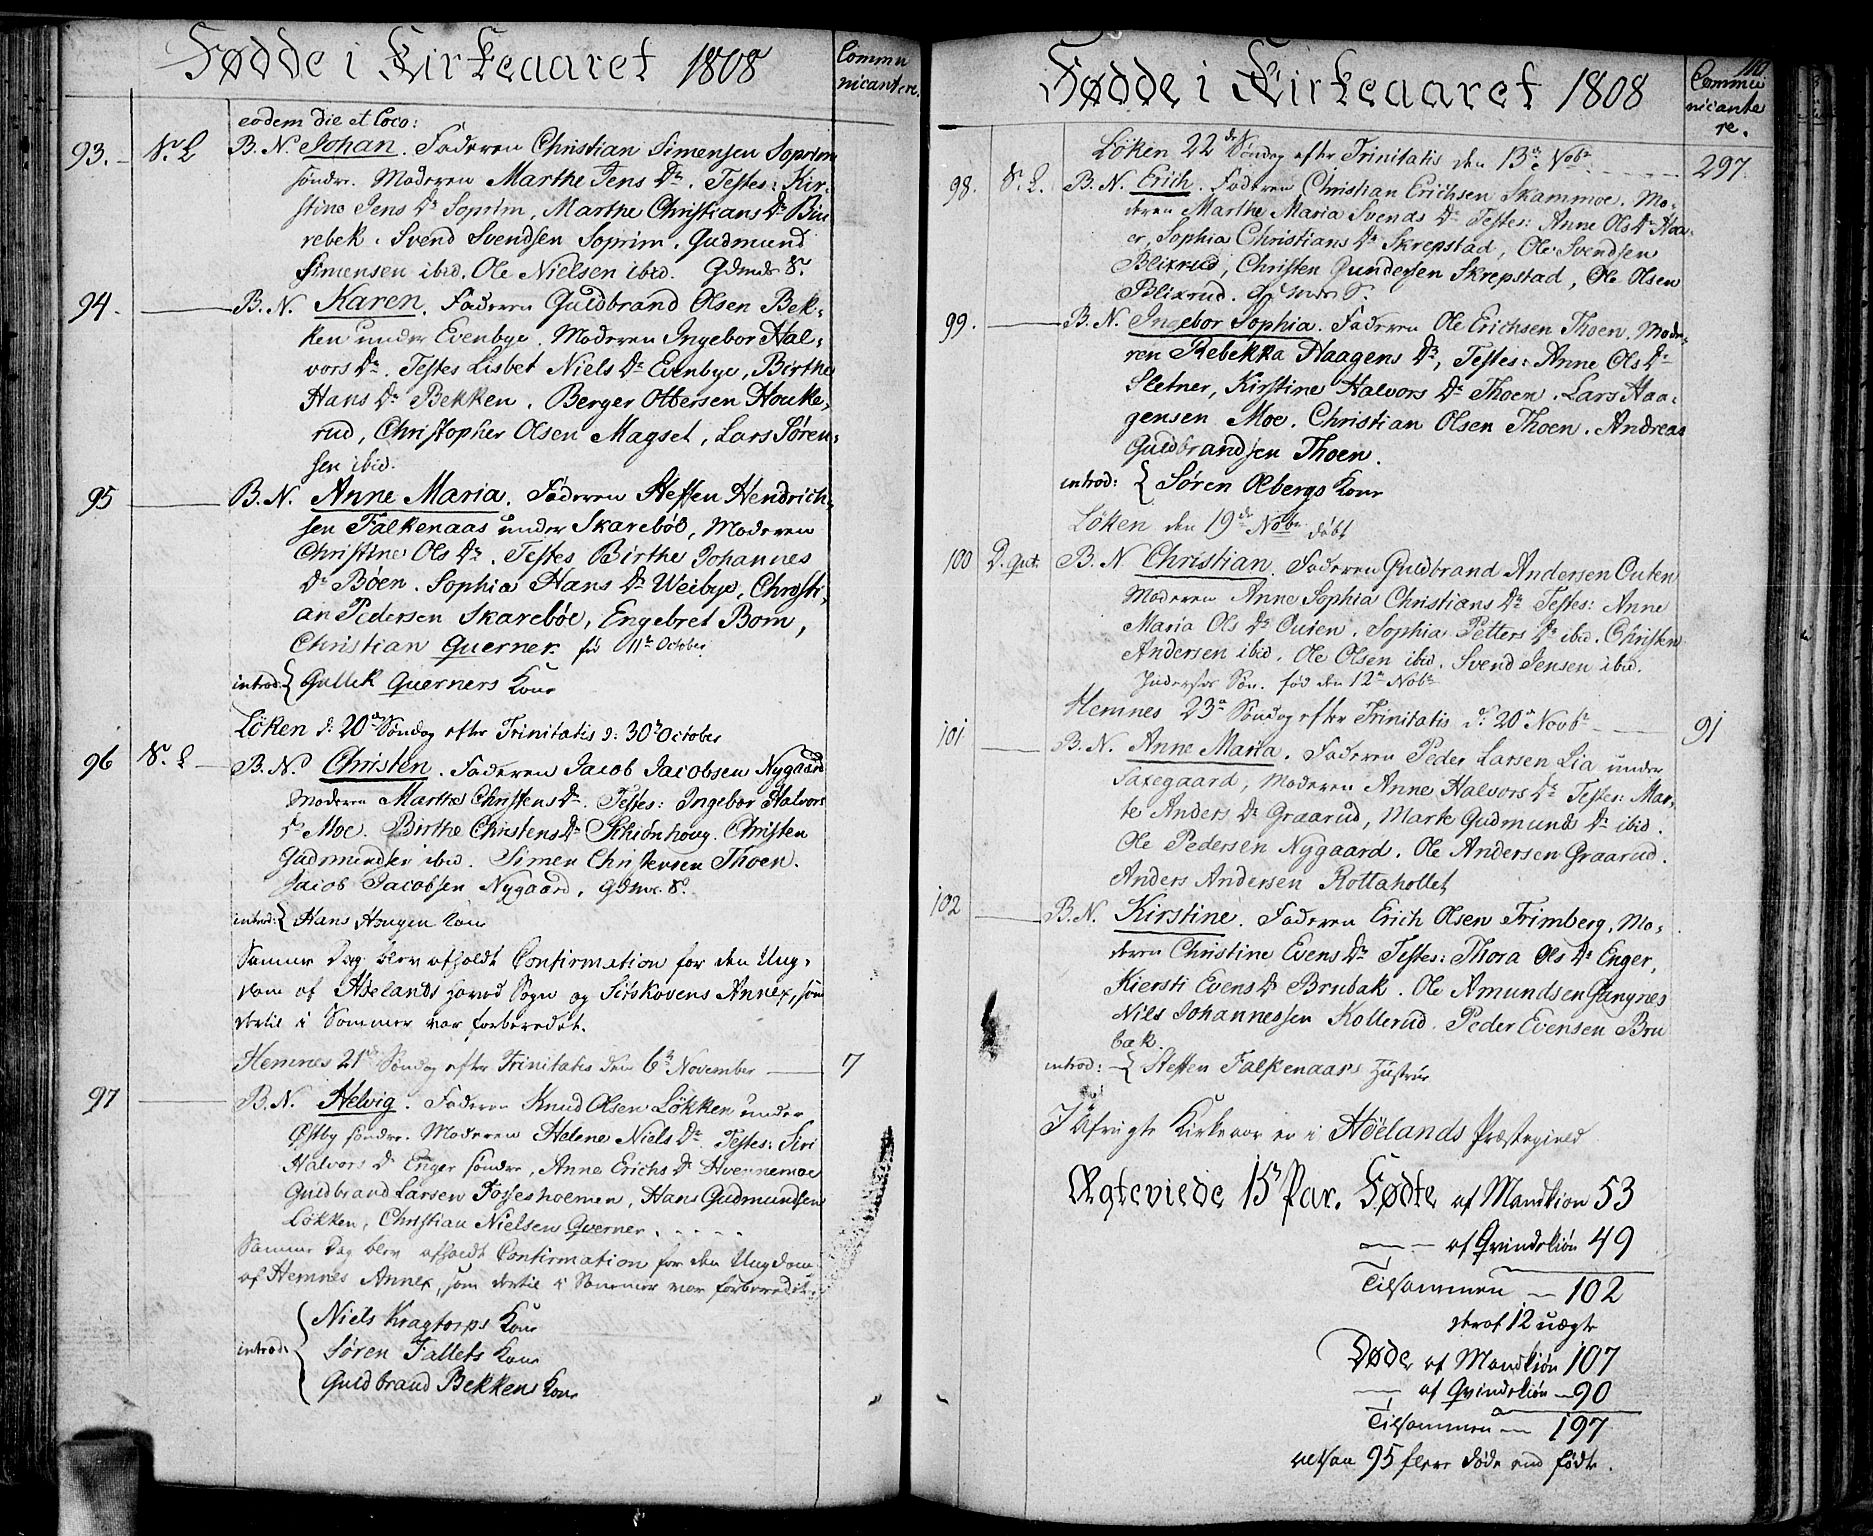 Fødde i Kirkeaaret 1808
Commu
nicantere.
eodem die et Loco:
93. S. L B. N. Johan. Faderen Christian Simensen Soprim
søndre. Moderen Marthe Jens Dr. Testes: Kir-
stine Jens Dr Soprim, Marthe Christians Dr Biu
rebek. Svend Svendsen Soprim. Gudmund
Simensen ibid. Ole Nielsen ibid. Gdmdr S.
94. B. N. Karen. Faderen Guldbrand Olsen Bek-
ken under Evenbye. Moderen Ingebor Hal-
vors Dr. Testes Lisbet Niels Dr Evenbye, Birthe
Hans Dr Bekken. Berger Ottersen Houke-
rud, Christopher Olsen Magset, Lars Søren-
sen ibid.
95 B. N. Anne Maria. Faderen Steffen Hendrich-
sen Falkenaas under Skarebøl, Moderen
Christine Ols Dr. Testes Birthe Johannes
Dr Bøen. Sophia Hans Dr Weibye, Christi-
an Pedersen Skarebøe, Engebret Born,
Christian Querner. 11te October
introd: { Gullek Querners Kone
Løken d: 20de Søndag efter Trinitatis d: 30te October
96 S. L B. N. Christen. Faderen Jacob Jacobsen Nygaard
Moderen Marthe Christens Dr. Testes: Ingebor Halvors
Dr Moe. Birthe Christens Dr Schiønhoug. Christen
Gudmundsen ibid. Simen Christensen Thoen.
Jacob Jacobsen Nygaard. Gdmr. S.
introd: { Hans Hougen Kone
Samme Dag blev afholdt Confirmation for den Ung-
dom af Høelands Hoved Sogn og Sitskovens Annex, som
dertil i Sommer var forberedet.
Hemnes 21de Søndag efter Trinitatis den 6te November 7
97 B. N. Helvig. Faderen Knud Olsen Løkken under
Østby søndre. Moderen Helene Niels Dr. Testes: Siri
Halvors Dr Enger søndre, Anne Erichs Dr Hvennemoe
Guldbrand Larsen Fossesholmen, Hans Gudmundsen
Løkken, Christian Nielsen Querner.
Samme Dag blev afholdt Confirmation for den Ungdom
af Hemnes Annex, som dertil i Sommer var forberedet.
Niels Kragtorps Kone
introd: { Søren Fallets Kone
Guldbrand Bekkens Kone
Fødde i Kirkeaaret 1808
Commu
nicante
re.
Løken 22de Søndag efter Trinitatis den 13de Nobr 297.
98. S. L. B. N. Erich. Faderen Christian Erichsen Skammoe. Mo-
deren Marthe Maria Svends Dr Testes: Anne Ols Dr Haa-
er, Sophia Christians Dr Skrepstad, Ole Svendsen
Blixrud, Christen Gundersen Skrepstad, Ole Olsen
Blixrud. Gdmdr S.
99. B. N. Ingebor Sophia. Faderen Ole Erichsen Thoen. Mode-
ren Rebekka Haagens Dr, Testes: Anne Ols Dr
Sletner, Kirstine Halvors Dr Thoen. Lars Haa-
gensen Moe. Christian Olsen Thoen. Andreas
Guldbrandsen Thoen.
introd: { Søren Olbergs Kone
Løken den 19de Nobr døbt
100 D. Gut. B. N Christian. Faderen Guldbrand Andersen Outen
Moderen Anne Sophia Christians Dr Testes: Anne
Maria Ols Dr Outen. Sophia Petters Dr ibid. Christen
Andersen ibid. Ole Olsen ibid. Svend Jensen ibid.
Søn. fød den 12te Nobr
Hemnes 23de Søndag efter Trinitatis d: 20de Novbr 91
101 B. N. Anne Maria. Faderen Peder Larsen Lia under
Saxegaard, Moderen Anne Halvors Dr Testes: Mar-
te Anders Dr Graarud, Marte Gudmunds Dr ibid.
Ole Pedersen Nygaard. Ole Andersen Graarud.
Anders Andersen Rottahollet
102 B. N. Kirstine. Faderen Erich Olsen Trimberg, Mo-
deren Christine Evens Dr Testes: Thora Ols Dr Enger,
Kiersti Evens Dr Brubak. Ole Amundsen Gangnes
Nils Johannessen Kollerud. Peder Evensen Bru
bæk.
introd: { Steffen Falkenaas Hustrue
I afvigte Kirkeaar er i Høelands Præstegield
Ægteviede 15 Par. Fødte af Mandkiøn 53
af Qvindekiøn 49
Tilsammen 102
deraf 12 uægte
Døde af Mandkiøn 107
af Qvindekiøn 90
Tilsammen 197
altsaa 95 flere døde end fødte.